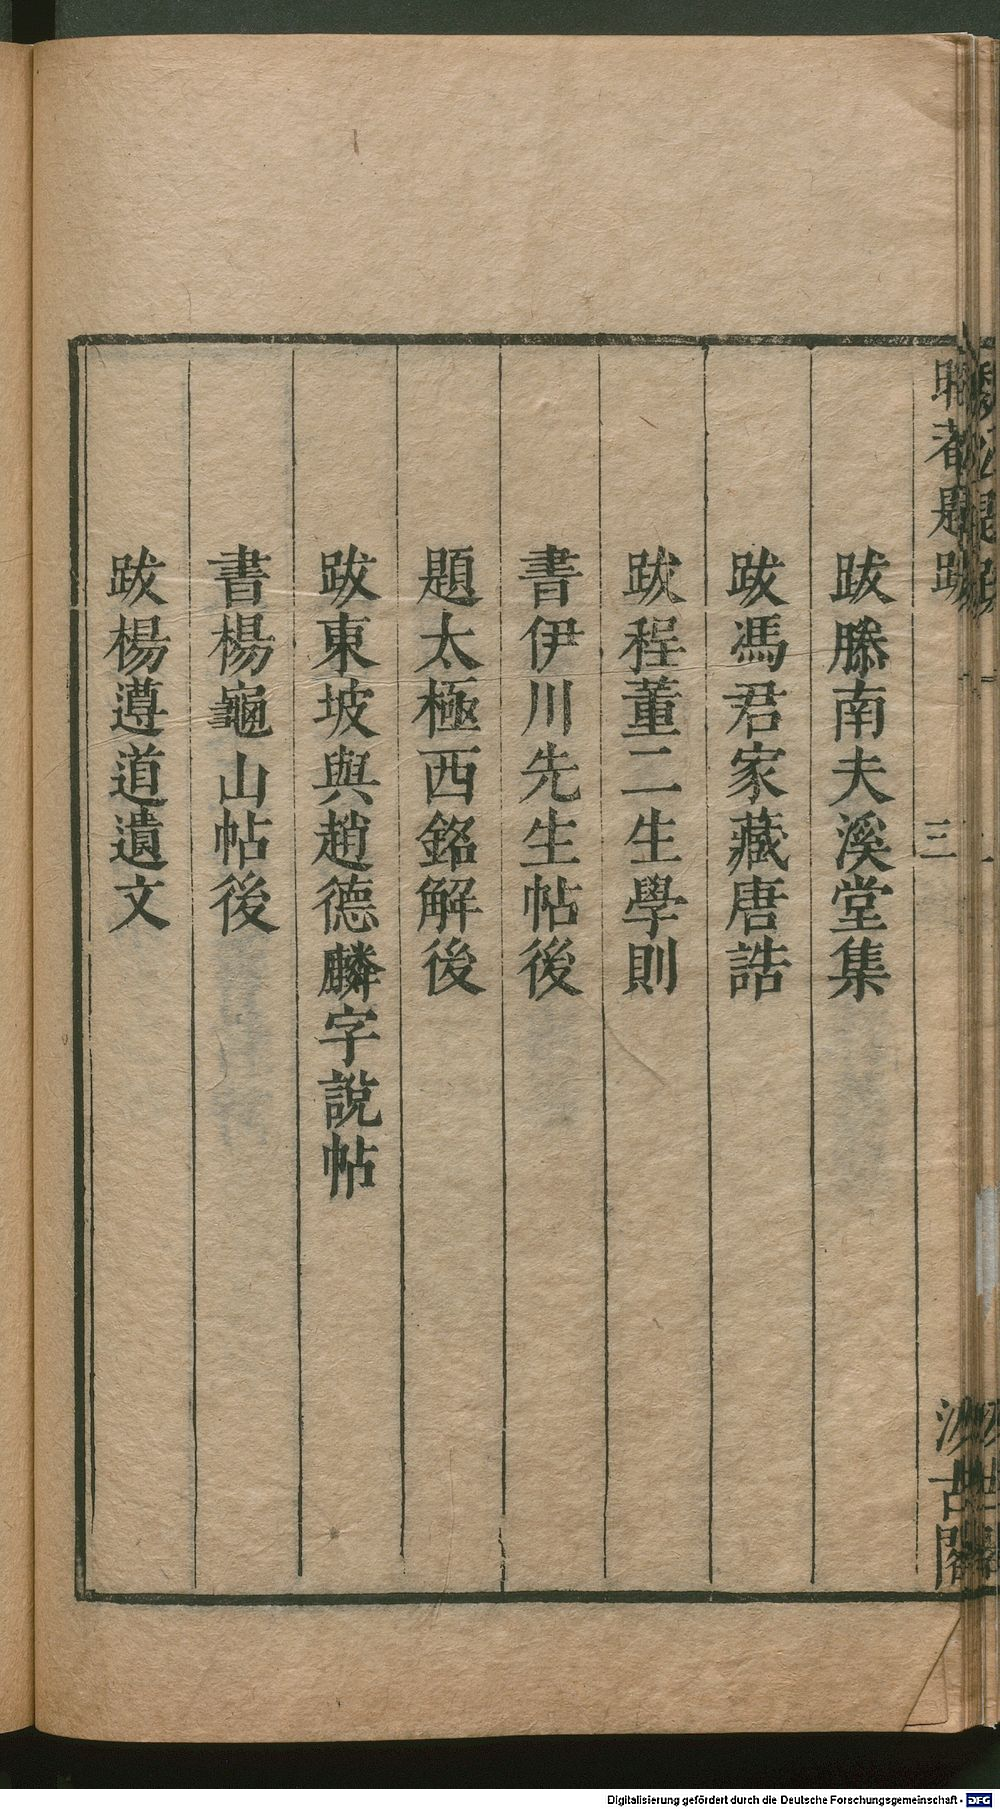 晦菴題跋
三
汲古閣
跋滕南夫溪堂集
跋馮君家藏唐誥
跋程董二生學則
書伊川先生帖後
題太極西銘解後
跋東坡與趙德麟字說帖
書楊龜山帖後
跋楊遵道遺文
Digitalisierung gefördert durch die Deutsche Forschungsgemeinschaft - DFG